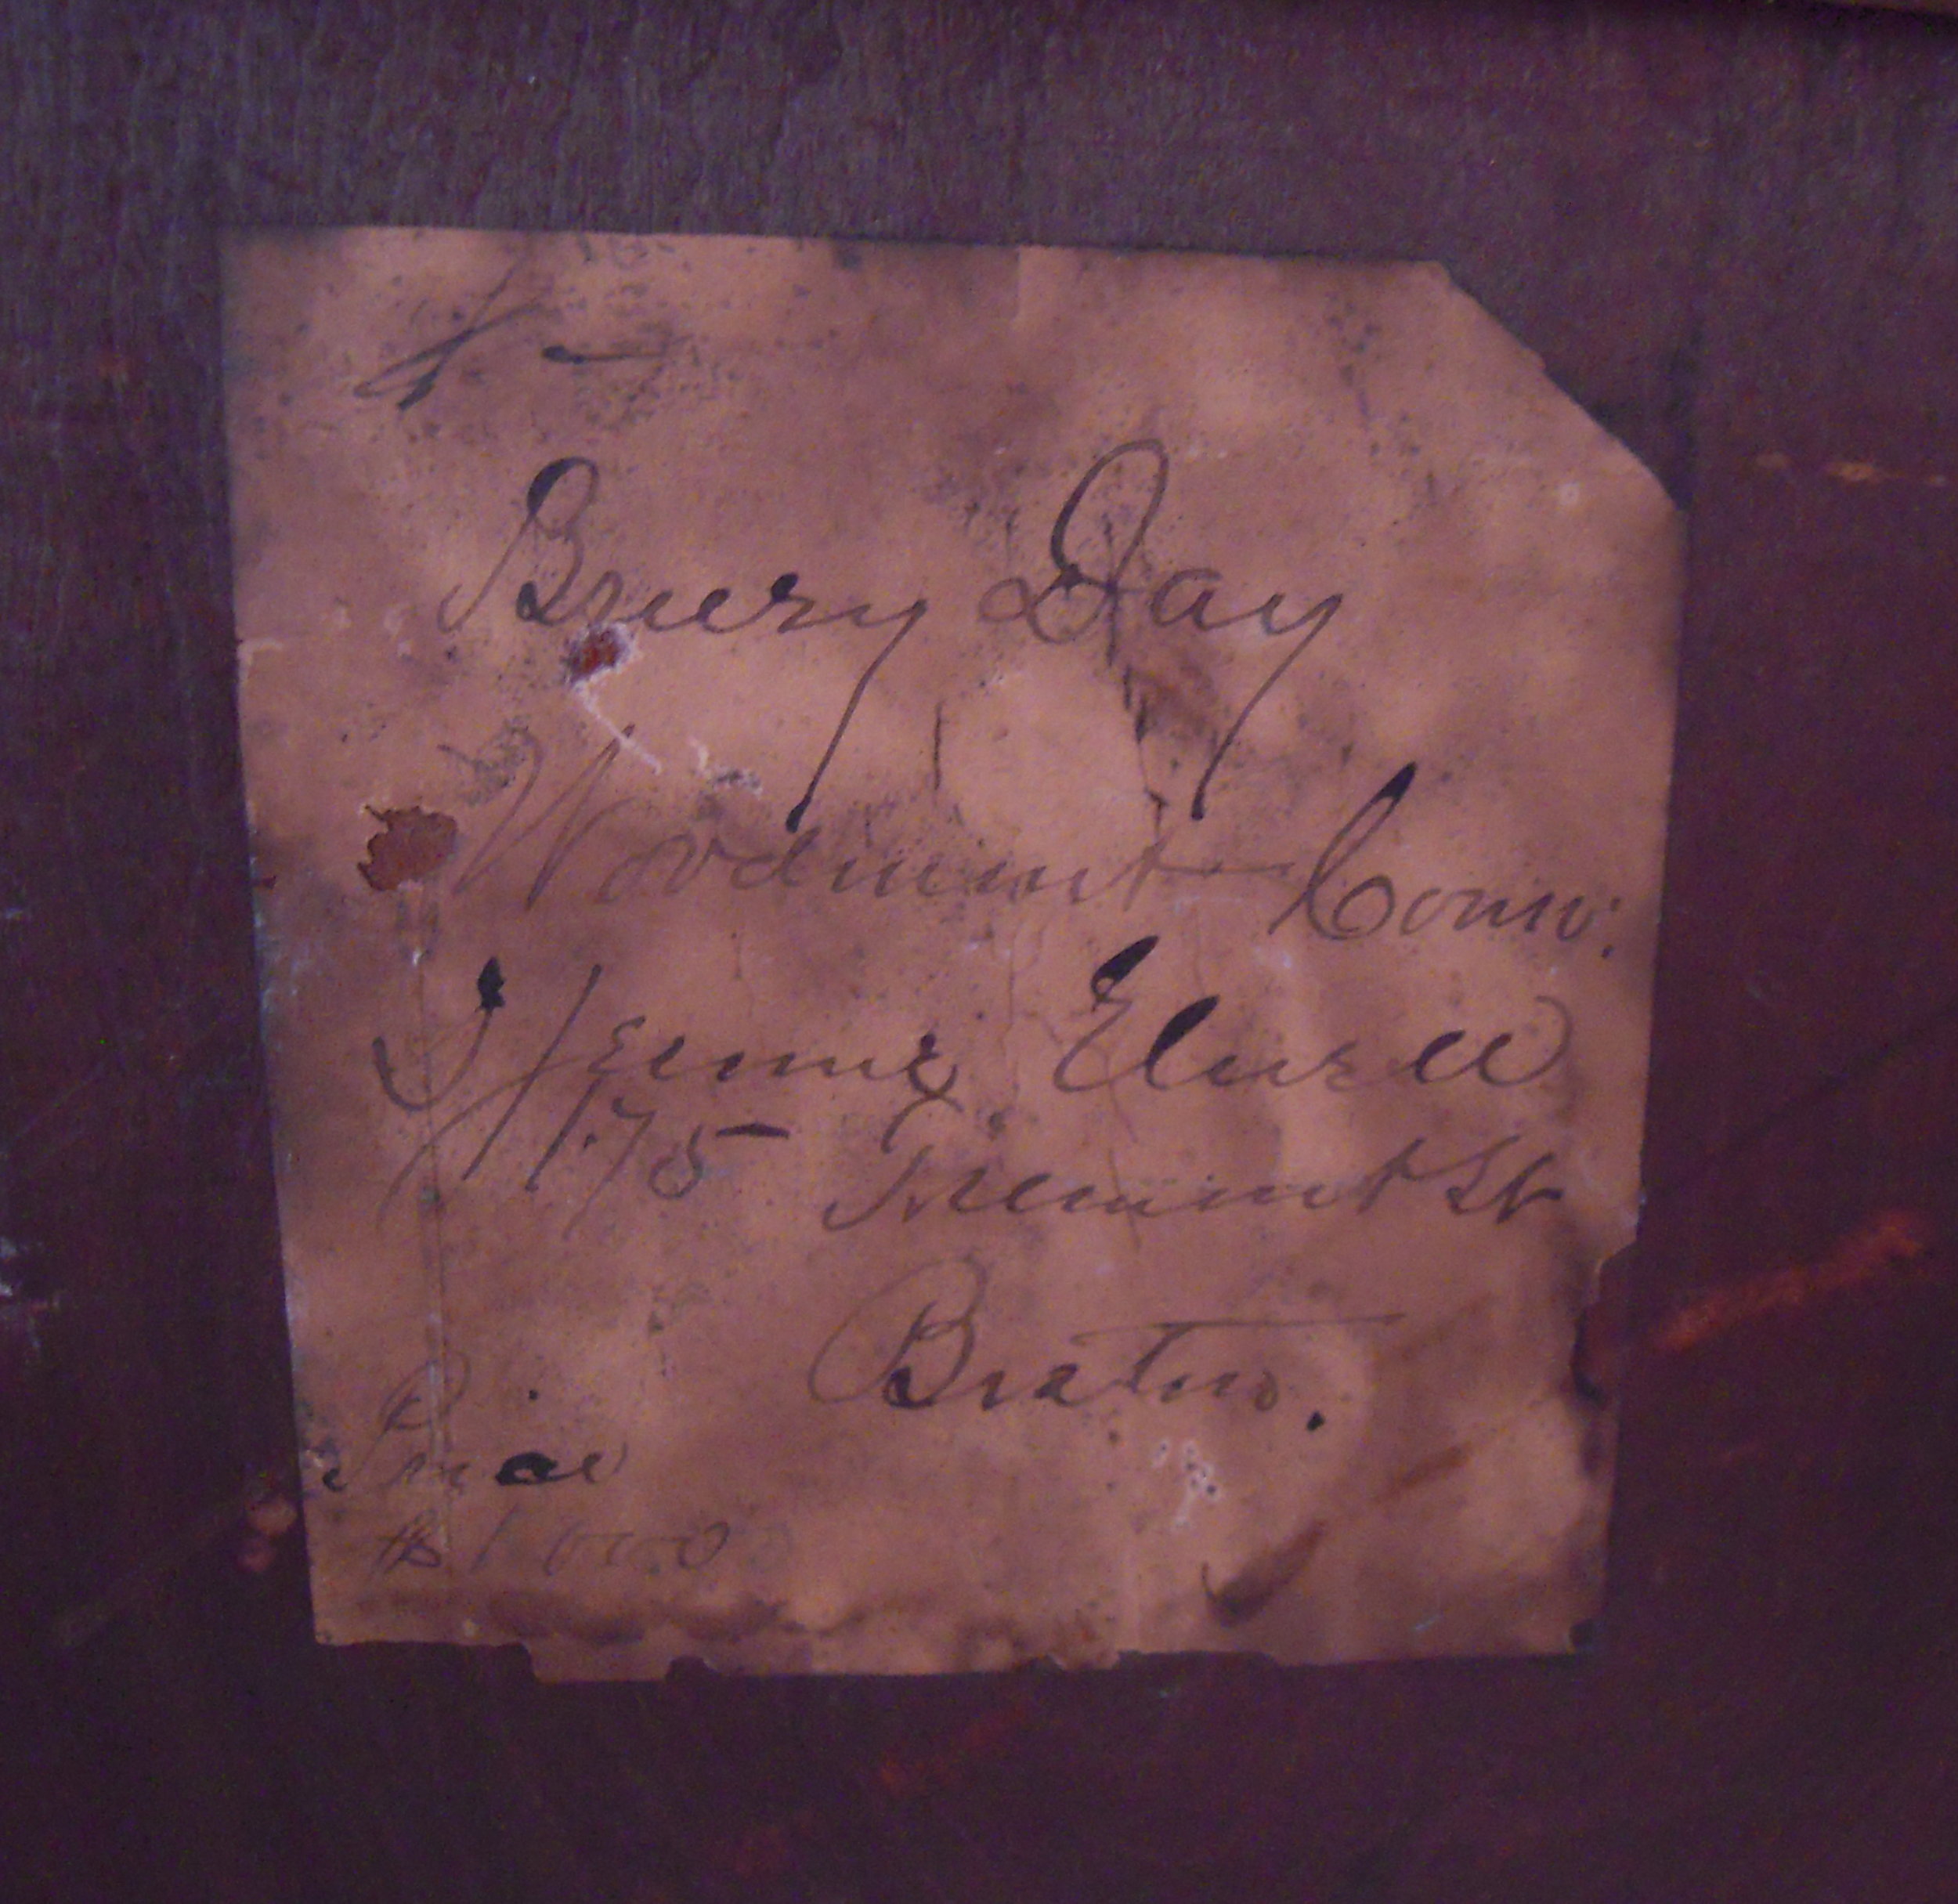 Breezy Day
Woodmont Conn.
Jerome Elwell
175 Tremont St
Boston.
Price
$1000